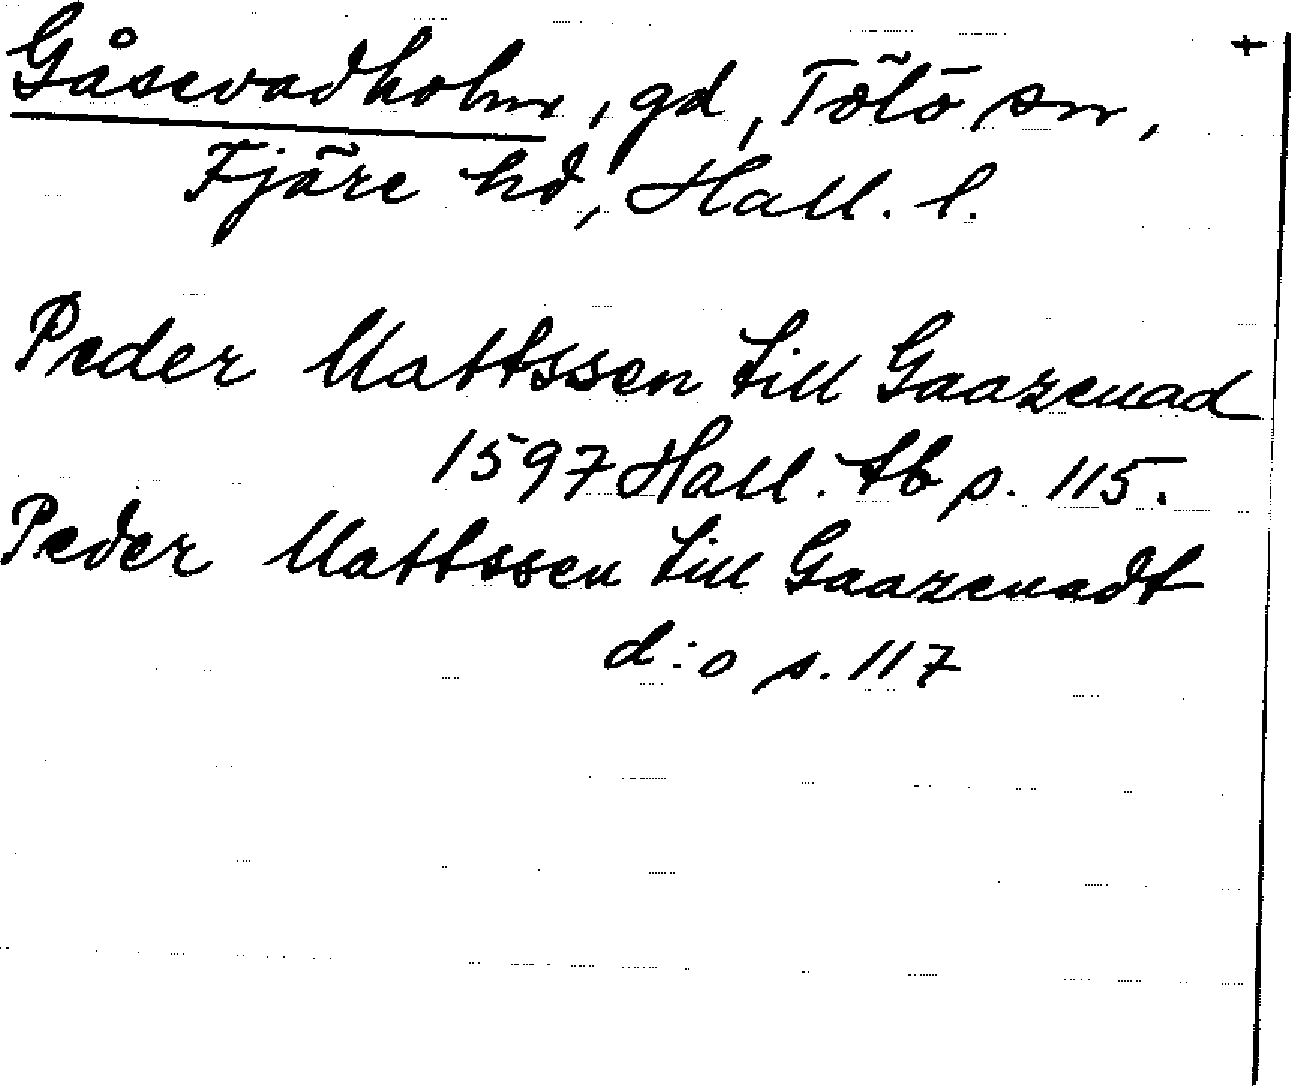 +
Gåsevadholm, gd, Tölö sn,
Fjäre hd, Hall. l.
Peder Mattssen till Gaazeuad
1597 Hall. tb p. 115.
Peder Mattssen till Gaazeuadt
d:o p. 117